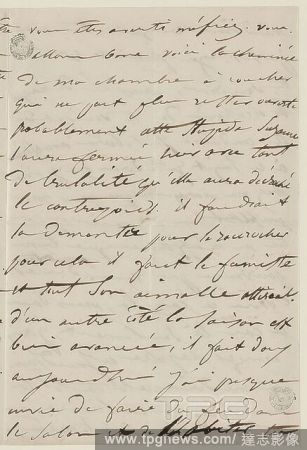 vous êtes averti méfiez vous
allons bon voici la cheminée
de ma chambre à coucher
qui ne peut plus rester ouverte
probablement cette stupide Suzanne
l'aura fermée hier avec tant
de brutalité qu'elle aura décroché
le contrepoids. il faudrait
la démonter pour le raccrocher
pour cela il faut le fumiste
et tout son aimable attirail
d'un autre côté la saison est
bien avancée, il fait doux
aujourd'hui j'ai presque
envie de faire du feu dans
le salon et de
www.tpgnews.com 達志影像